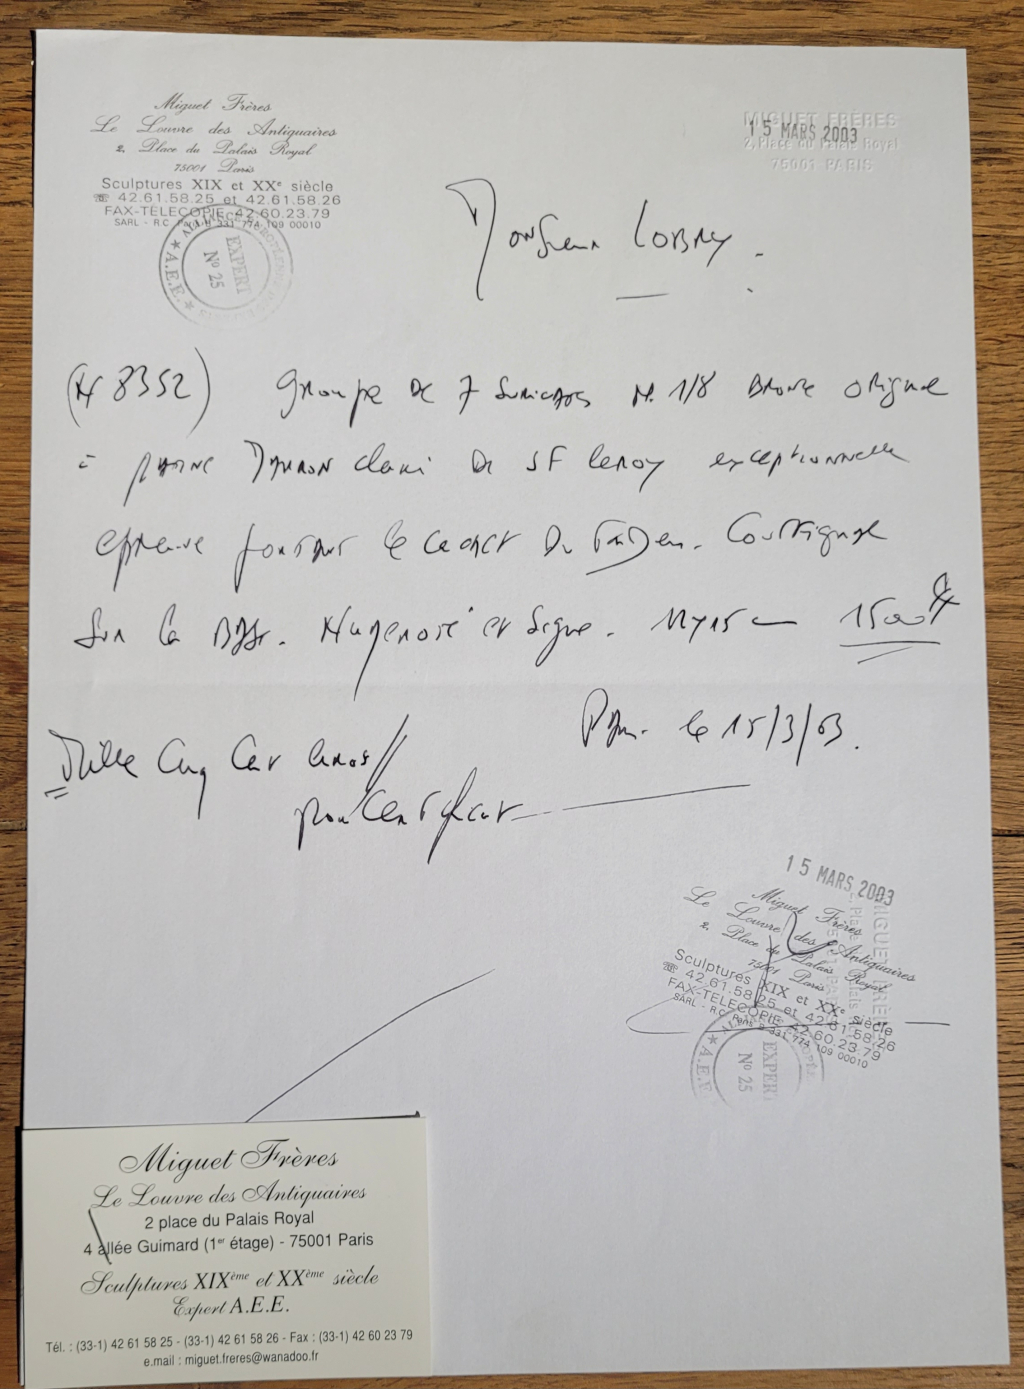 Miguet Frères
Le Louvre des Antiquaires
2, Place du Palais Royal
75001 Paris
Sculptures XIX et XXe siècle
☎ 42.61.58.25 et 42.61.58.26
FAX-TELECOPIE 42.60.23.79
SARL - R.C. Paris B 331 774 109 00010
EXPERT
N° 25
★ A.E.E. ★
MIGUET FRÈRES
15 MARS 2003
2, Place du Palais Royal
75001 PARIS
Monsieur LOBRY.
(N 8352) Groupe de 7 suricates N. 1/8 Bronze original
à patine clair de JF Leroy exceptionnelle
épreuve portant le cachet du
sur la et signé. 1500 €
Mille Cinq Cent euros //
Paris le 15/3/03.
pour Certificat
15 MARS 2003
Miguet Frères
Le Louvre des Antiquaires
2, Place du Palais Royal
75001 Paris
Sculptures XIX et XXe siècle
☎ 42.61.58.25 et 42.61.58.26
FAX-TELECOPIE 42.60.23.79
SARL - R.C. Paris B 331 774 109 00010
MIGUET FRÈRES
EXPERT
N° 25
★ A.E.E
Miguet Frères
Le Louvre des Antiquaires
2 place du Palais Royal
4 allée Guimard (1er étage) - 75001 Paris
Sculptures XIXème et XXème siècle
Expert A.E.E.
Tél. : (33-1) 42 61 58 25 - (33-1) 42 61 58 26 - Fax : (33-1) 42 60 23 79
e.mail : miguet.freres@wanadoo.fr